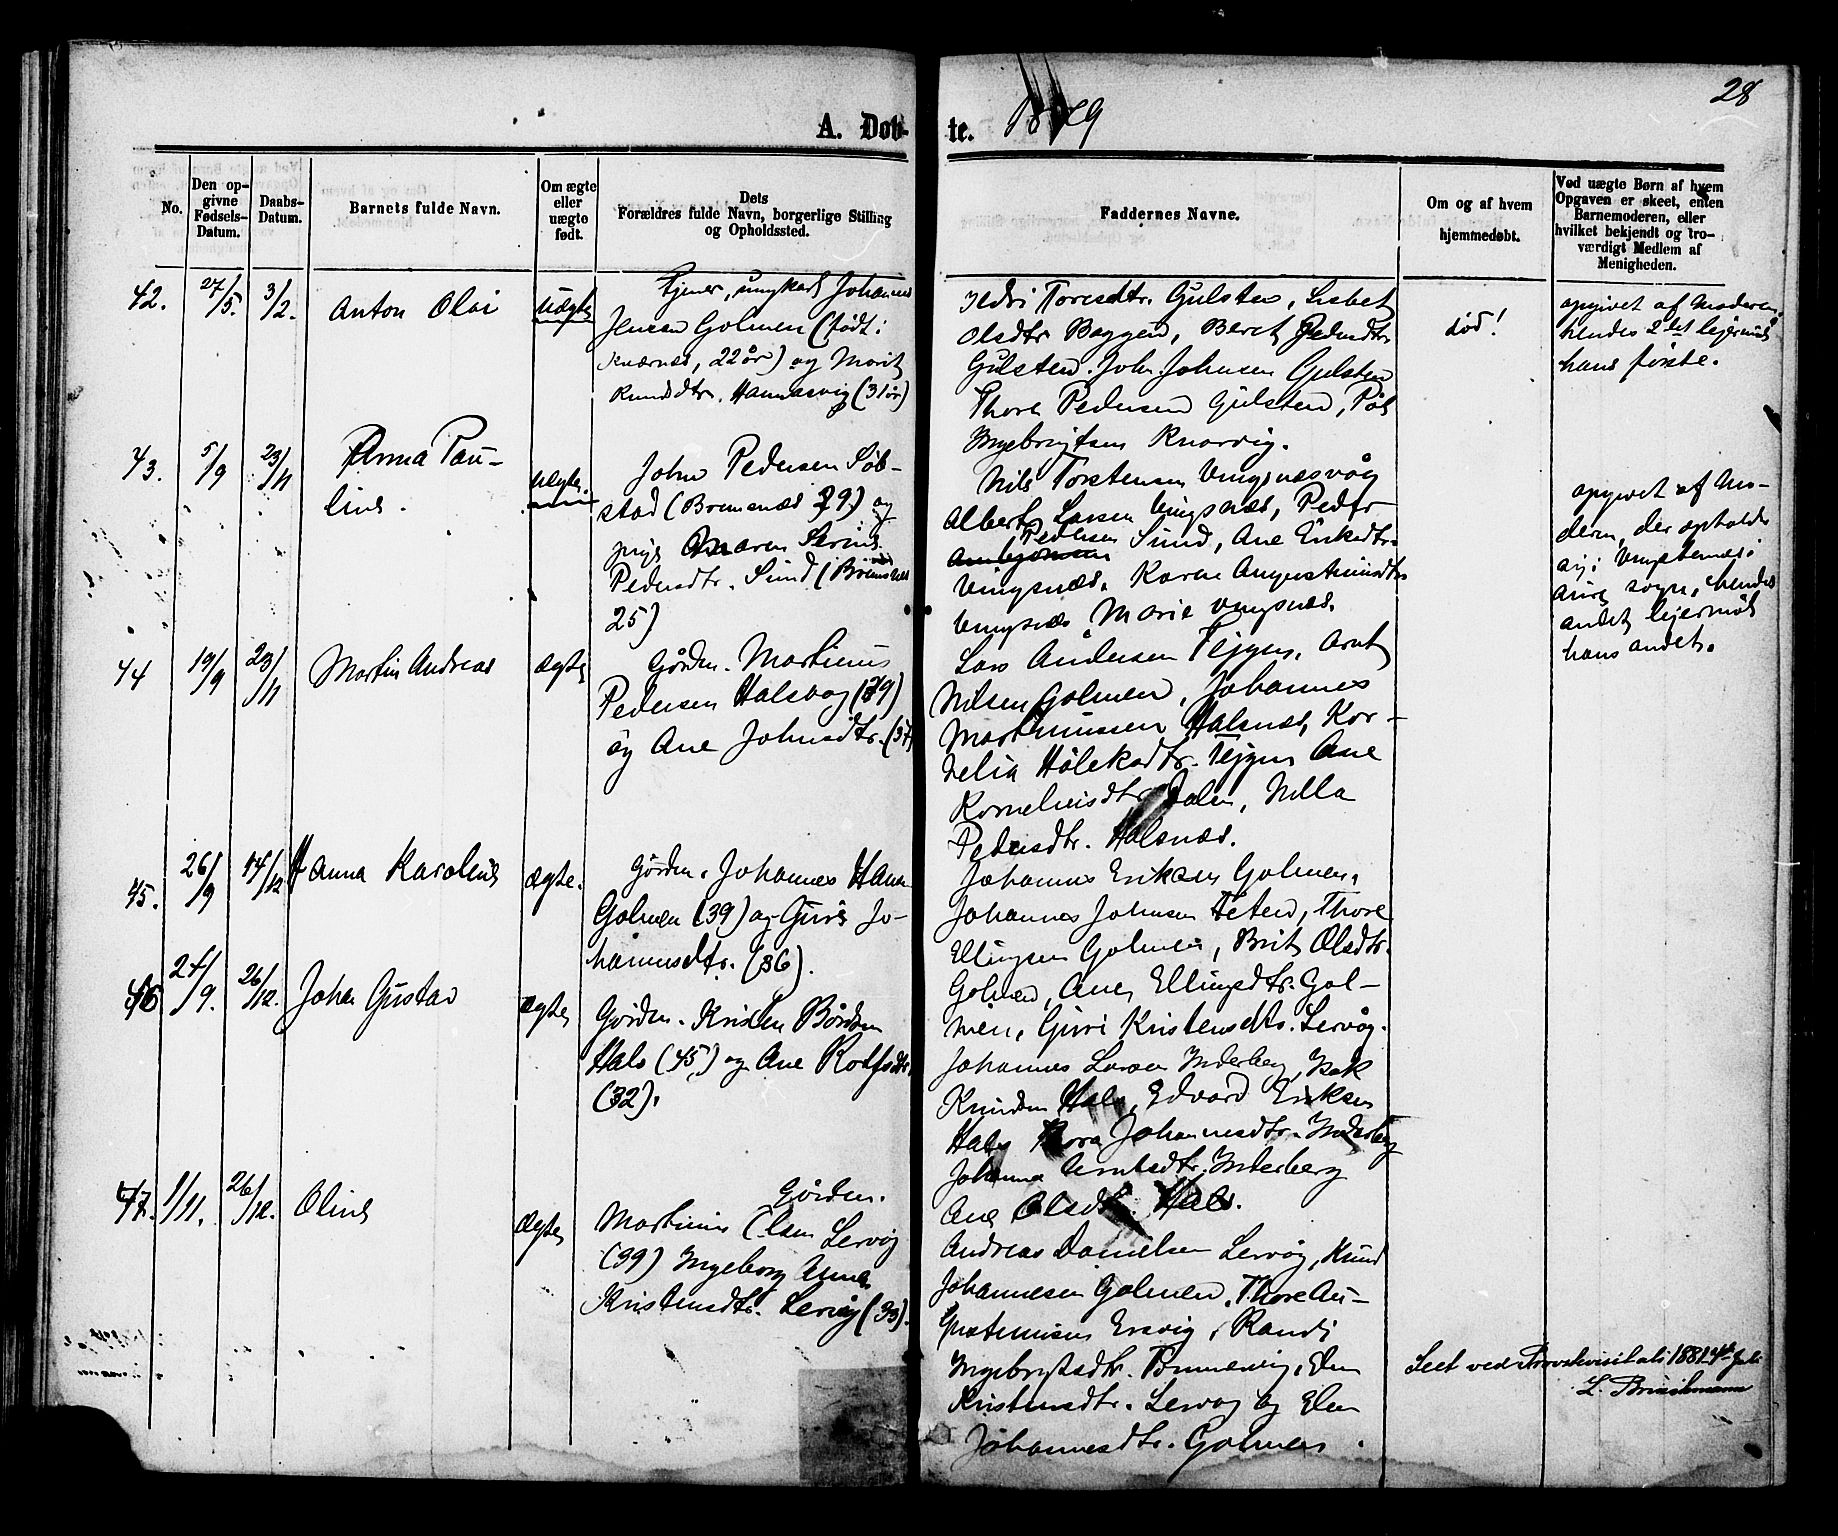 28
A. Døb-
te. 1879
No.
Den op-
givne
Fødsels-
Datum.
Daabs-
Datum.
Barnets fulde Navn.
Om ægte
eller
uægte
født.
Dets
Forældres fulde Navn, borgerlige Stilling
og Opholdssted.
Faddernes Navne.
Om og af hvem
hjemmedøbt.
Ved uægte Børn af hvem
Opgaven er skeet, enten
Barnemoderen, eller
hvilket bekjendt og tro-
værdigt Medlem af
Menigheden.
42.
27/5.
3/2.
Anton Olai
uægte
Tjener, ungkarl Johannes
Jensen Golmen (født i
22 år) og Marit
Knudsdtr. Hannasvig (31 år)
Toresdtr. Gulsten, Lisbet
Olsdtr Baggen, Beret Pedersdtr
Gulsten. John Johnsen Gulsten
Thore Pedersen Gulsten, Pål
Ingebrigtsen Knarvig.
død!
opgivet af Moderen,
hendes 2det lejermål
hans første.
43.
5/9
23/11
Anna Pau-
line.
uægte.
John Pedersen Søb-
stad (Bremsnæs 29) og
pige Maren Serine
Pedersdtr. Sund (Bremsnæs
25)
Nils Torstensen Vingsnæsvåg
Albert Larsen Vingsnæs, Peder
Pedersen Sund, Ane Eriksdtr.
Vingsnæs. Karen Augustinusdtr
Vingsnæs Marie Vingsnæs.
opgivet af Mo-
deren, der opholdt
sig i Vingsnæs i
Aure sogn, hendes
andet lejermål
hans andet.
44
19/9
23/11
Martin Andreas
ægte
Gårdm. Martinus
Pedersen Halsvåg (39)
og Ane Johnsdtr. (37)
Lars Andersen Tejgen, Arnt
Nilsen Golmen, Johannes
Martinussen Halsnæs, Kor-
nelia Tejgen Ane
Korneliusdtr. Dalen, Nilla
Pedersdtr. Halsnæs.
45.
26/9
14/12
Hanna Karoline
ægte.
Gårdm. Johannes Hans.
Golmen (39) og Guri Jo-
hannesdtr. (36).
Johannes Eriksen Golmen.
Johannes Johnsen Teten, Thore
Ellingsen Golmen, Brit Olsdtr.
Golmen, Ane Ellingsdtr. Gol-
men, Guri Kristensdtr. Lervåg.
46
27/9.
26/12.
Johan Gustav
ægte
Gårdm. Kristen Bårdsen
Hals (45) og Ane Rolfsdtr
(32).
Johannes Larsen Inderberg, Isak
Knudsen Hals, Edvard Eriksen
Hals Johannesdtr. Inderberg
Johanna Arntsdtr. Inderberg
Ane Olsdtr. Hals.
47.
1/11.
26/12.
Oline
ægte
Gårdm.
Martinus Olsen Lervåg
(39) Ingeborg Anna
Kristensdtr. Lervåg (33).
Andreas Danielsen Lervåg, Knud
Johannesen Golmen, Thore Au-
gustinusen Ersvig, Randi
Ingebrigtsdtr. Elen
Kristensdtr. Lervåg og Elen
Johannesdtr. Golmen.
Seet ved Provstevisitats 1881 4de Juli
L. Brinchmann